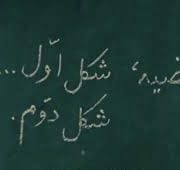 شکل اوّل ...
شکل دوّم.